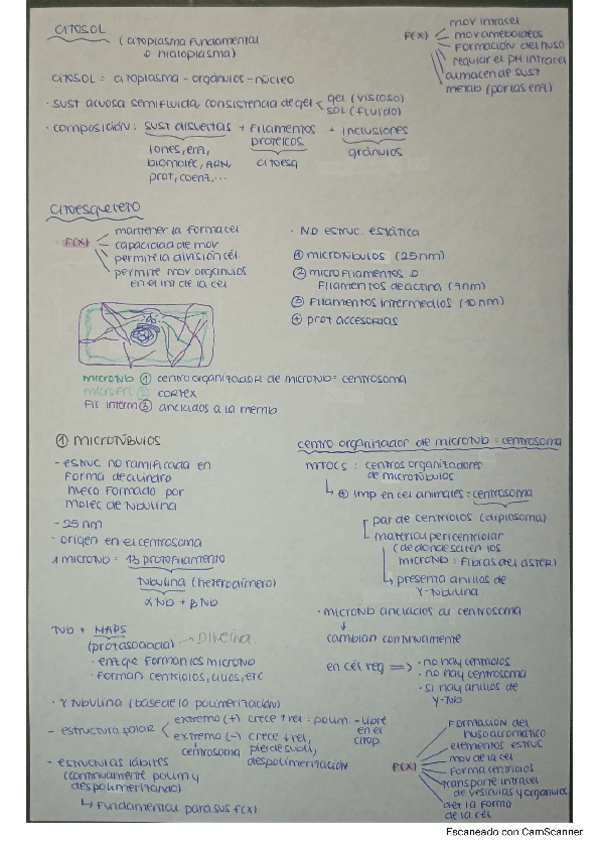 CITOSOL
(citoplasma fundamental
o hialoplasma)
f(x)
mov intracel
mov ameboideos
formación del huso
regular el pH intracel
almacen de sust
metab (por las enz)
CITOSOL = citoplasma - orgánulos - núcleo
· sust acuosa semifluida, consistencia de gel
gel (viscoso)
SOL (fluido)
· composición: sust disueltas + filamentos proteicos + inclusiones
iones, enz,
biomolec, ARN,
prot, coenz, ...
citoesq
gránulos
CITOESQUELETO
f(x)
mantener la forma cel
capacidad de mov
permite la división cél
permite mov orgánulos
en el int de la cel
· NO estruc estática
① microtúbulos (25nm)
② microfilamentos o
filamentos de actina (7nm)
③ filamentos intermedios (10nm)
⊕ prot accesorias
microtub ① centro organizador de microtub: centrosoma
microfil ② cortex
fil interm ③ anclados a la memb
① MICROTÚBULOS
- estruc no ramificada en
forma de cilindro
hueco formado por
molec de tubulina
- 25 nm
- origen en el centrosoma
1 microtub = 13 protofilamento
tubulina (heterodímero)
α tub + β tub
tub + MAPS
(prot asociada)
· enz que forman los microtub
· forman centriolos, cilios, etc
· γ tubulina (base de la polimerización)
- estructura polar
extremo (+) crece ↑ rel: polim - libre
en el
citop
extremo (-) crece ↓ rel,
centrosoma
pierde subu,
despolimerización
- estructuras lábiles
(continuamente polim y
despolimerizando)
↳ fundamental para sus f(x)
centro organizador de microtub: centrosoma
MTOCs: centros organizadores
de microtúbulos
↳ ⊕ imp en cel animales: centrosoma
par de centriolos (diplosoma)
material pericentriolar
(de donde salen los
microtub: fibras del ASTER)
↳ presenta anillos de
γ-tubulina
· microtub anclados al centrosoma
↓
cambian continuamente
en cél veg ⟹
· no hay centriolos
· no hay centrosoma
· si hay anillos de
γ-tub
f(x)
formación del
huso acromático
elementos estruc
mov de la cel
forma centriolos
transporte intracel
de vesículas y orgánulos
det la forma
de la cel
Escaneado con CamScanner